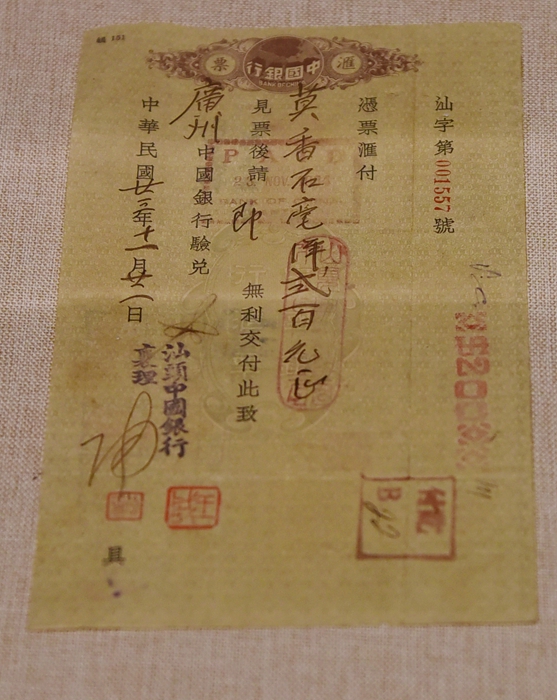 匯票
中國銀行
汕字第001557號
憑票匯付
莫香石毫洋弍百元正
見票後請即無利交付此致
廣州中國銀行驗兌
中華民國廿三年十一月廿一日
汕頭中國銀行
襄理
具
PAID
NOV
BANK OF
$200